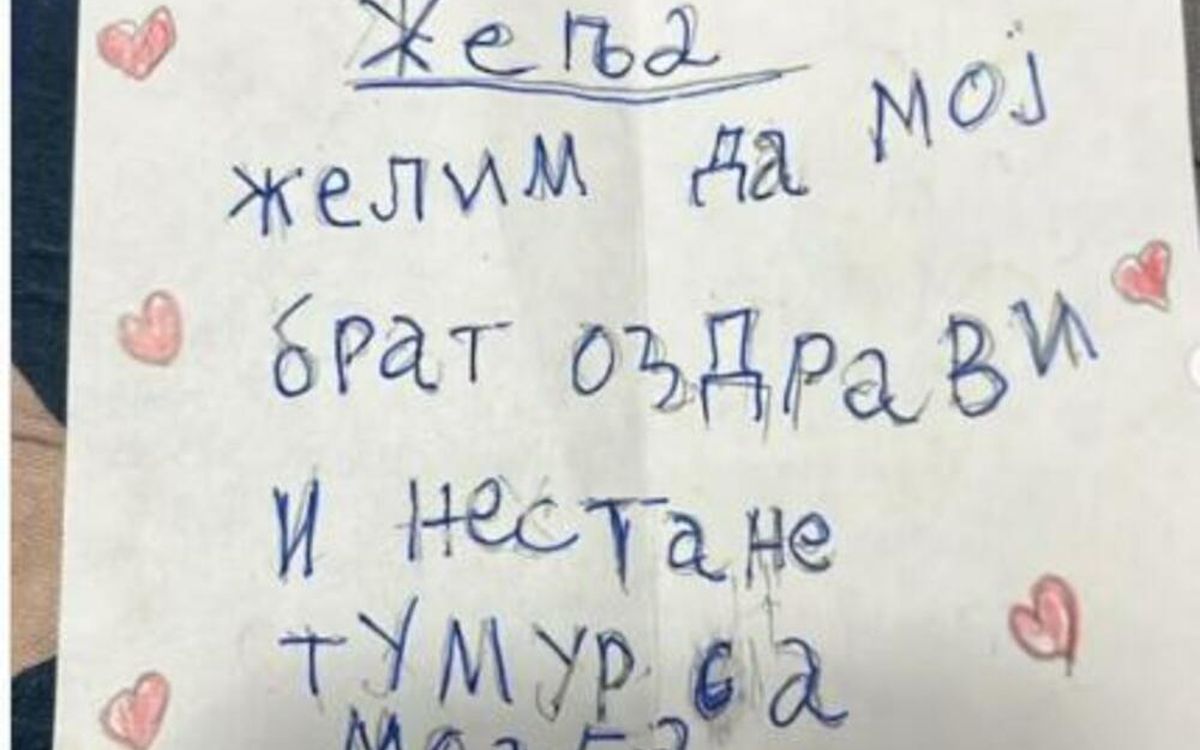 Жења
желим да мој
брат оздрави
и нестане
тумур са